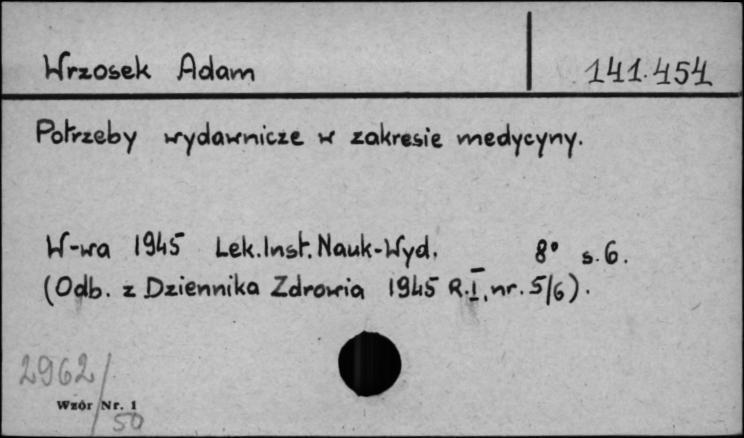 Wrzosek Adam 141.454
Potrzeby wydawnicze w zakresie medycyny.
W-wa 1945 Lek.Inst.Nauk-Wyd. 8° s.6.
(Odb. z Dziennika Zdrowia 1945 R.I, nr. 5/6).
2962/50
Wzór Nr. 1